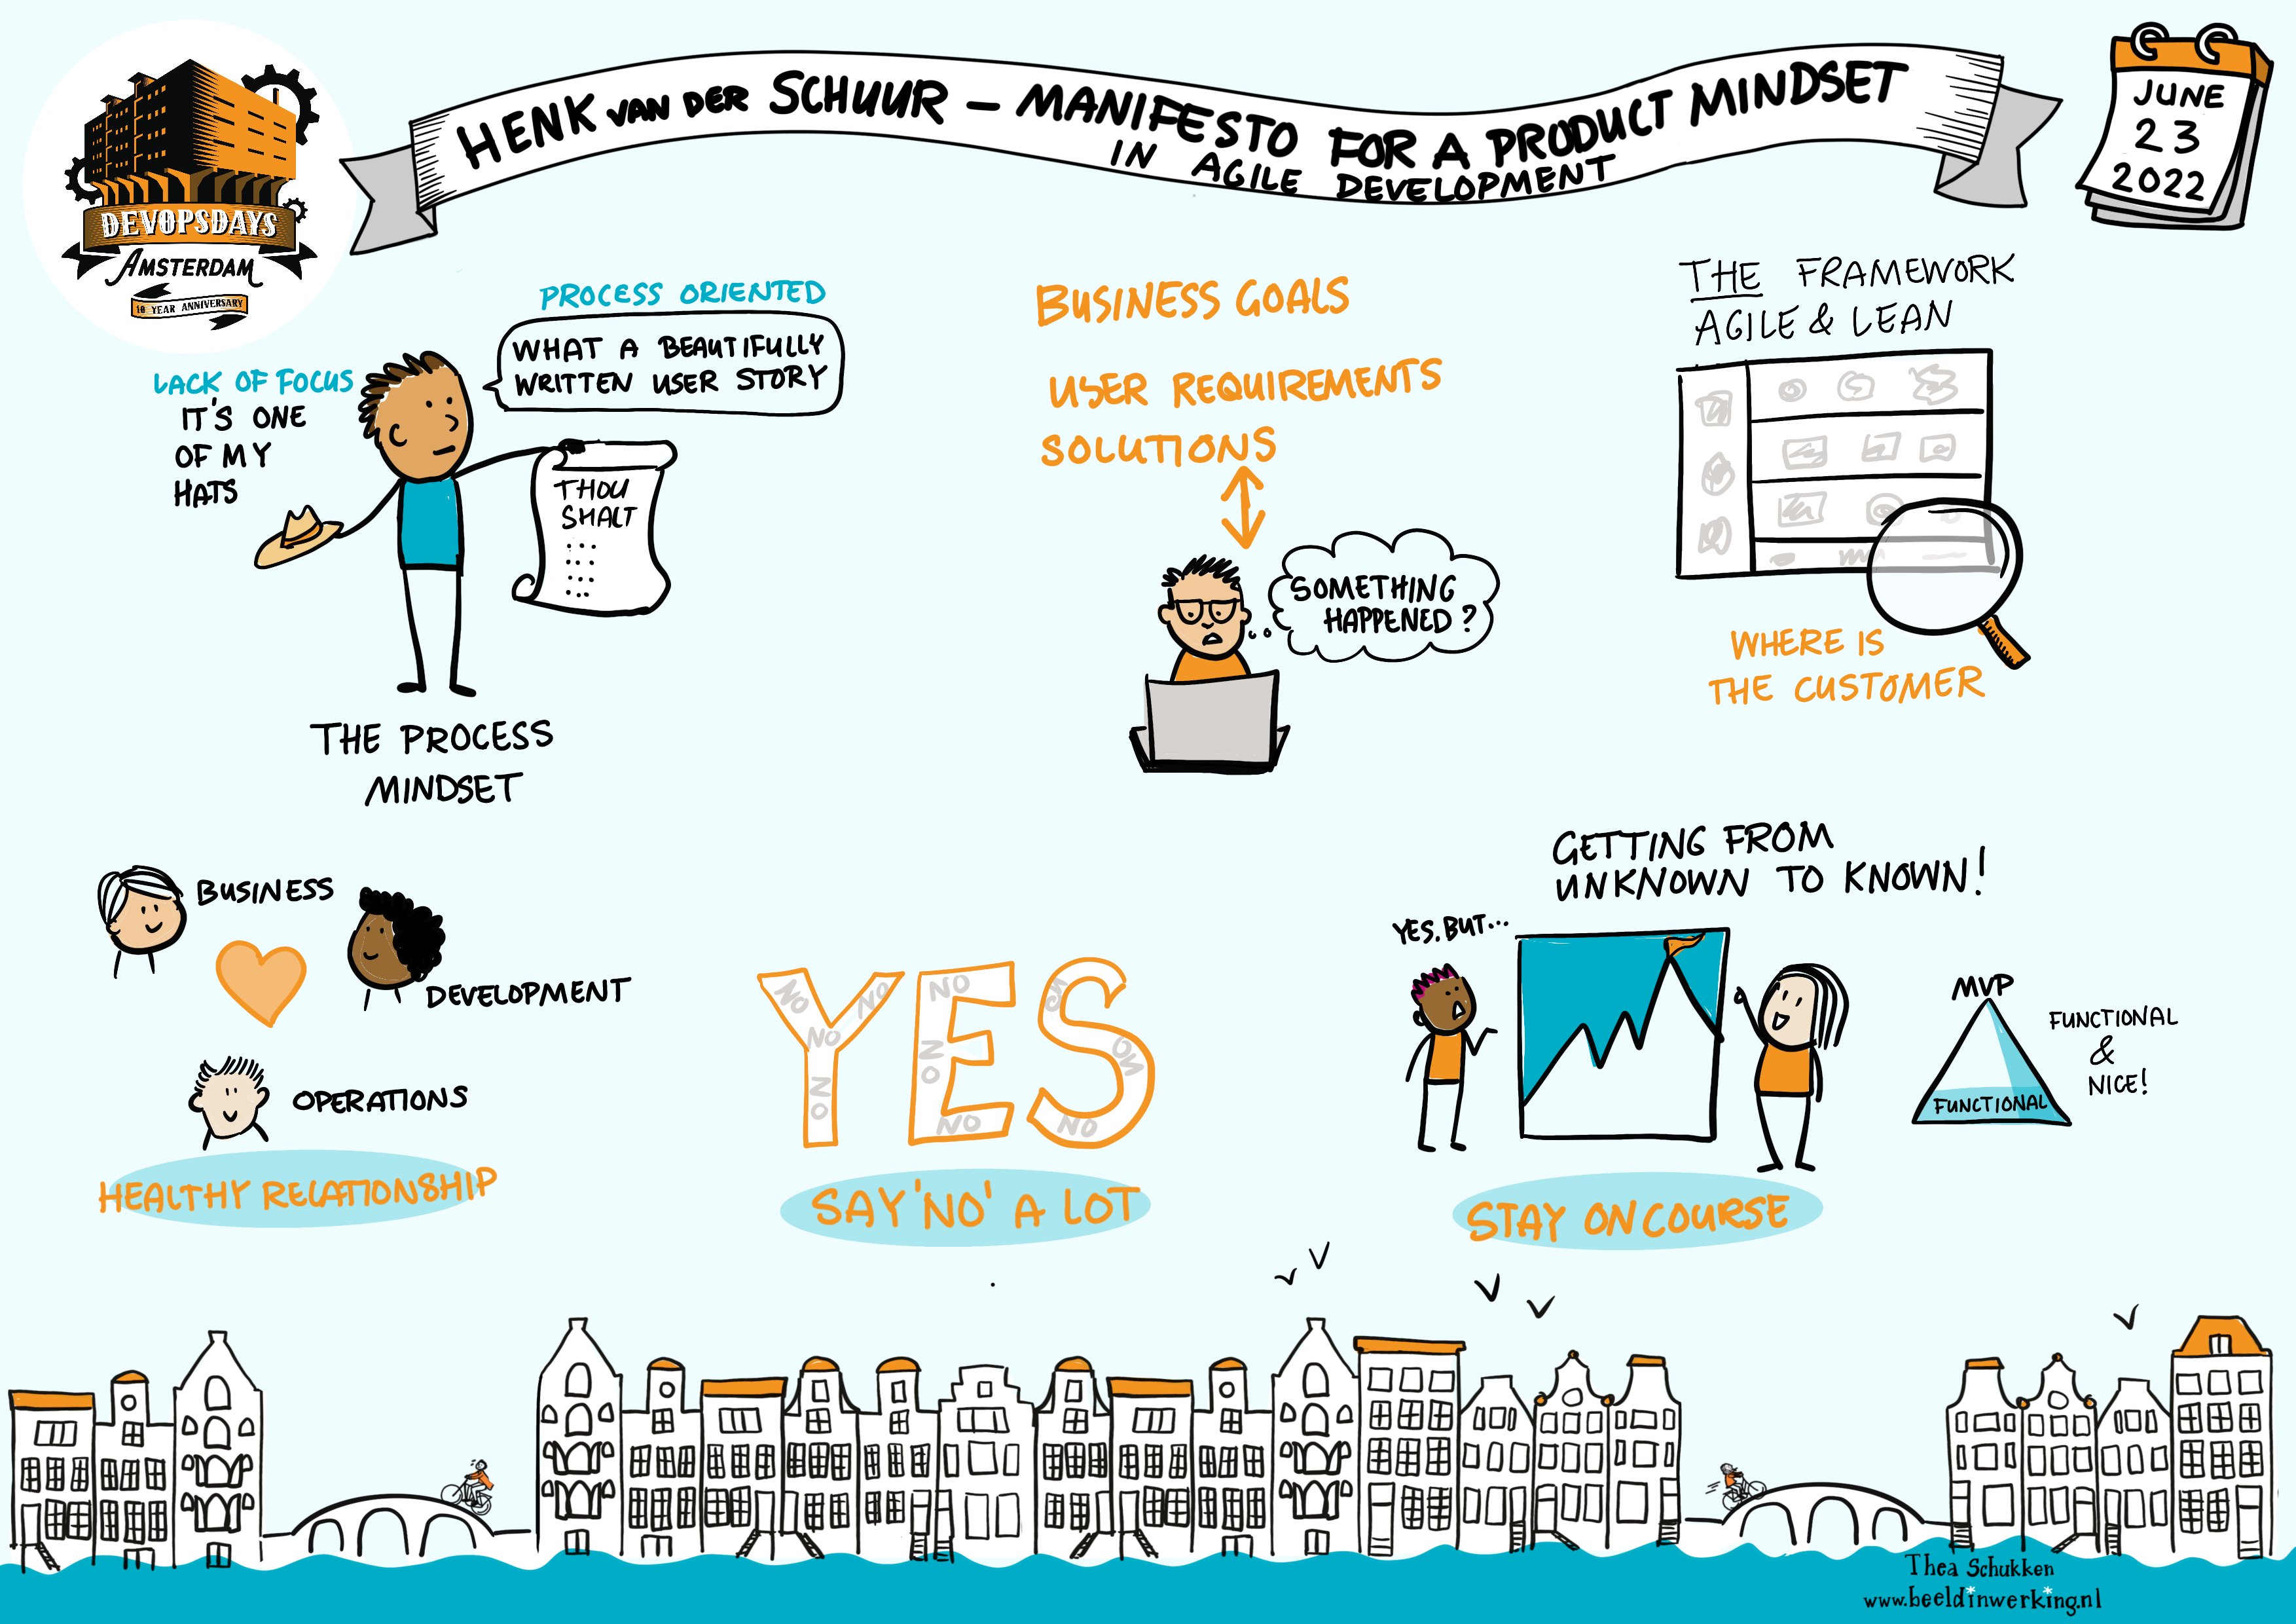 DEVOPSDAYS
AMSTERDAM
10 YEAR ANNIVERSARY
HENK VAN DER SCHUUR – MANIFESTO FOR A PRODUCT MINDSET
IN AGILE DEVELOPMENT
JUNE
23
2022
PROCESS ORIENTED
WHAT A BEAUTIFULLY
WRITTEN USER STORY
LACK OF FOCUS
IT'S ONE
OF MY
HATS
THOU
SHALT
THE PROCESS
MINDSET
BUSINESS GOALS
USER REQUIREMENTS
SOLUTIONS
SOMETHING
HAPPENED?
THE FRAMEWORK
AGILE & LEAN
WHERE IS
THE CUSTOMER
BUSINESS
DEVELOPMENT
OPERATIONS
HEALTHY RELATIONSHIP
YES
NO
NO
NO
NO
NO
NO
NO
NO
NO
NO
SAY 'NO' A LOT
GETTING FROM
UNKNOWN TO KNOWN!
YES, BUT...
MVP
FUNCTIONAL
&
NICE!
FUNCTIONAL
STAY ON COURSE
Thea Schukken
www.beeldinwerking.nl